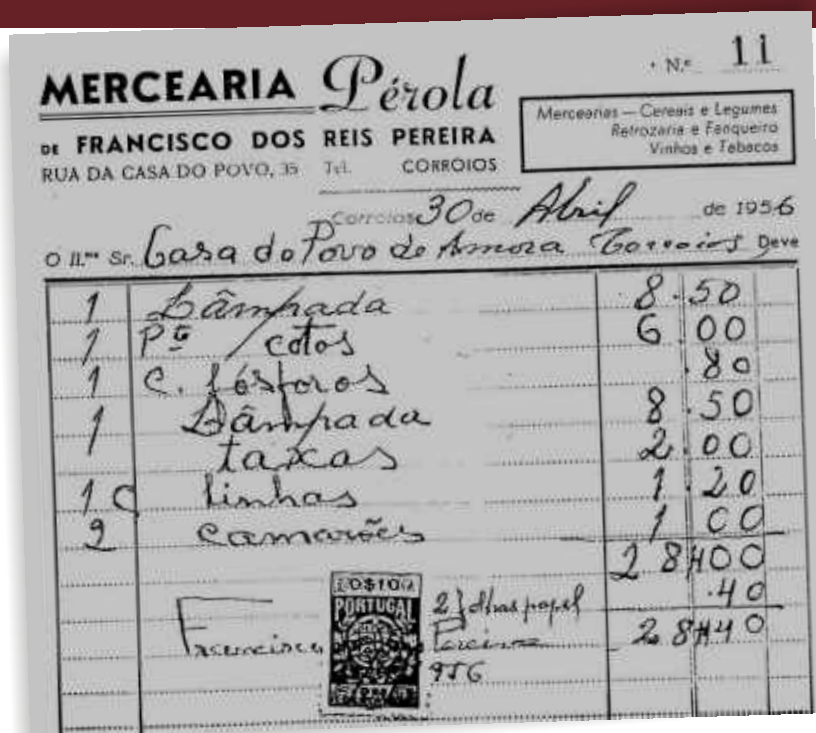 MERCEARIA Pérola
· N.º 11
DE FRANCISCO DOS REIS PEREIRA
RUA DA CASA DO POVO, 35 Tel. CORROIOS
Mercearias — Cereais e Legumes
Retrozaria e Fanqueiro
Vinhos e Tabacos
Corroios 30 de Abril de 1956
O Il.mo Sr. Casa do Povo de Amora Corroios Deve
1 Lâmpada 8.50
1 P.º / cotos 6 00
1 C. fósforos .80
1 Lâmpada 8.50
taxas 2.00
1 C linhas 1.20
2 camarões 1 00
28$00
2 folhas papel .40
28$40
Francisco Pereira
956
$10
PORTUGAL